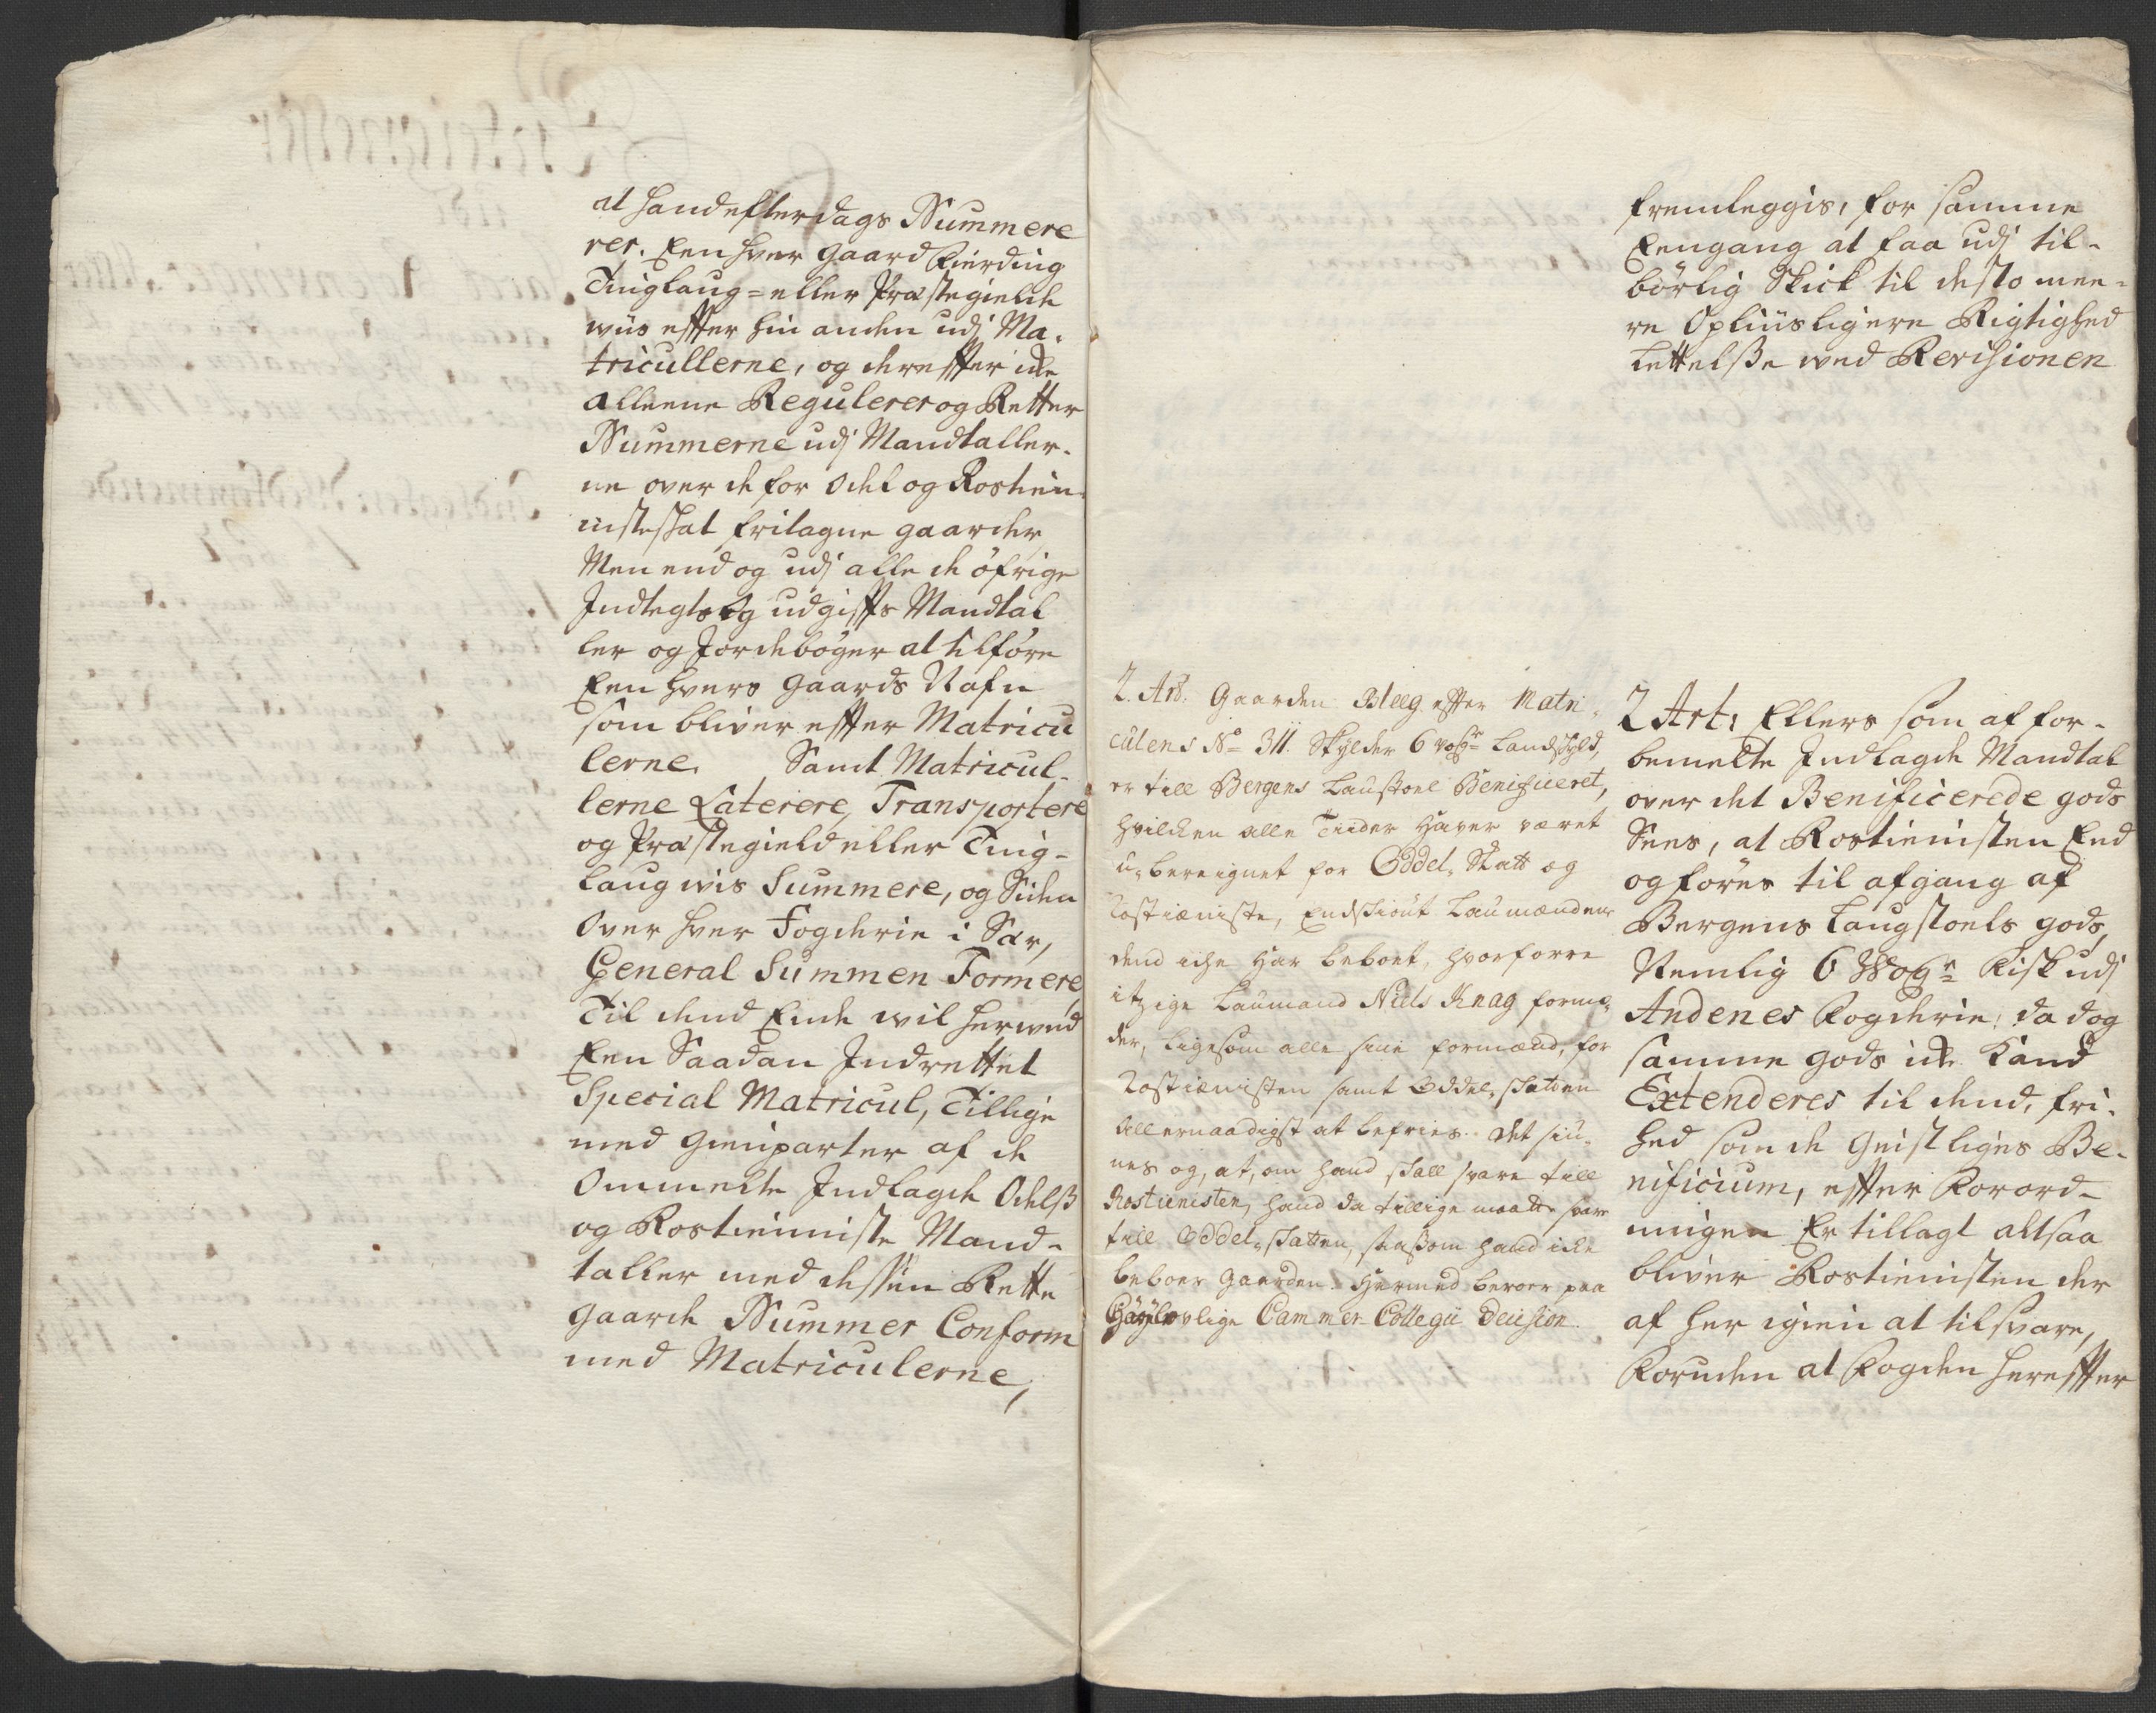 at hand effterdags Nummere
rer. Een hver gaard Fierding
Tinglaug = eller Præstegields
wiis effter hin anden udj Ma-
tricullerne, og dereffter icke
alleene Regulerer og Retter
Nummerne udj Mandtaller-
ne over de for Odel og Rostien-
nisteskat fritagne gaarder
Men end og udj alle de öfrige
Indtegts og udgiffts Mandtal
ler og Jordebøger at tilföre
Een hvers gaards Nafn
som bliver effter Matricu
lerne. Samt Matricul-
lerne Laterere, Transportere
og Præstegield eller Ting-
laug wis Summere, og Siden
Over hver Fogderie i Sær,
General Summen Formere
Til dend Ende wil herved
Een Saadan Indrettet
Special Matricul, Tillige
med Gienparter af de
Ommelte Indlagde Odelss
og Rostienniste Mand-
taller med dessen Rette
gaarde Nummer Conform
med Matriculerne,
2. Art: Gaarden Bleeg effter Matri-
culens No 311. Skylder 6 voger Landskyld,
er till Bergens Laustoel Benificeret,
hvilcken alle Tiider haver været
u-bereignet for Oddel-Skatt og
Rostieniste, Endskiönt Laumændene
dend icke har beboet, hvorforre
itzige Laumand Niels Knag formo-
der, ligesom alle sine formænd, for
Rostienisten samt Oddel-skatten
Allernaadigst at befries. Det siu-
nes og, at, om hand skall svare till
Rostienisten, hand da tillige maatte svare
till Oddel-skatten, saasom hand icke
beboer gaarden. Hermed beroer paa
Höÿlovlige Cammer Collegii Decision.
fremleggis, for samme
Eengang at faa udj til-
börlig Skick til desto mee-
re Opliusligere Rigtighed
Lettelsse wed Revisionen
2 Art: Ellers som af for-
bemelte Indlagde Mandtal
over det Benificerede gods
Sees, at Rostienisten End
og föres til afgang af
Bergens Laugstoels gods,
Nemlig 6 Woger Fisk udj
Andenes Fogderie: da dog
samme gods icke kand
Extenderes til dend, fri-
hed som de Geistliges Be-
nificium, effter Forord-
ningen Er tillagt altsaa
bliver Rostienisten der
af her igien at tilsvare,
Foruden at Fogden hereffter